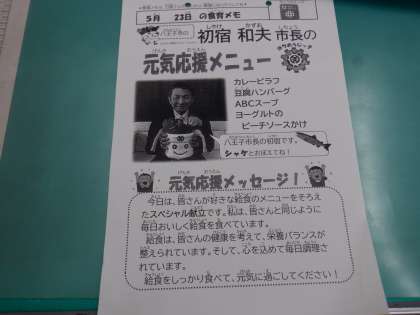 5月 23日 の食育メモ
八王子市の
初宿 和夫 市長の
しやけ かずお しちょう
元気応援メニュー
げんき おうえん
カレーピラフ
豆腐ハンバーグ
ABCスープ
ヨーグルトの
ピーチソースかけ
八王子市長の初宿です。
シャケとおぼえてね!
元気応援メッセージ!
今日は、皆さんが好きな給食のメニューをそろえ
たスペシャル献立です。私は、皆さんと同じように
毎日おいしく給食を食べています。
給食は、皆さんの健康を考えて、栄養バランスが
整えられています。そして、心を込めて毎日調理さ
れています。
給食をしっかり食べて、元気に過ごしてください!